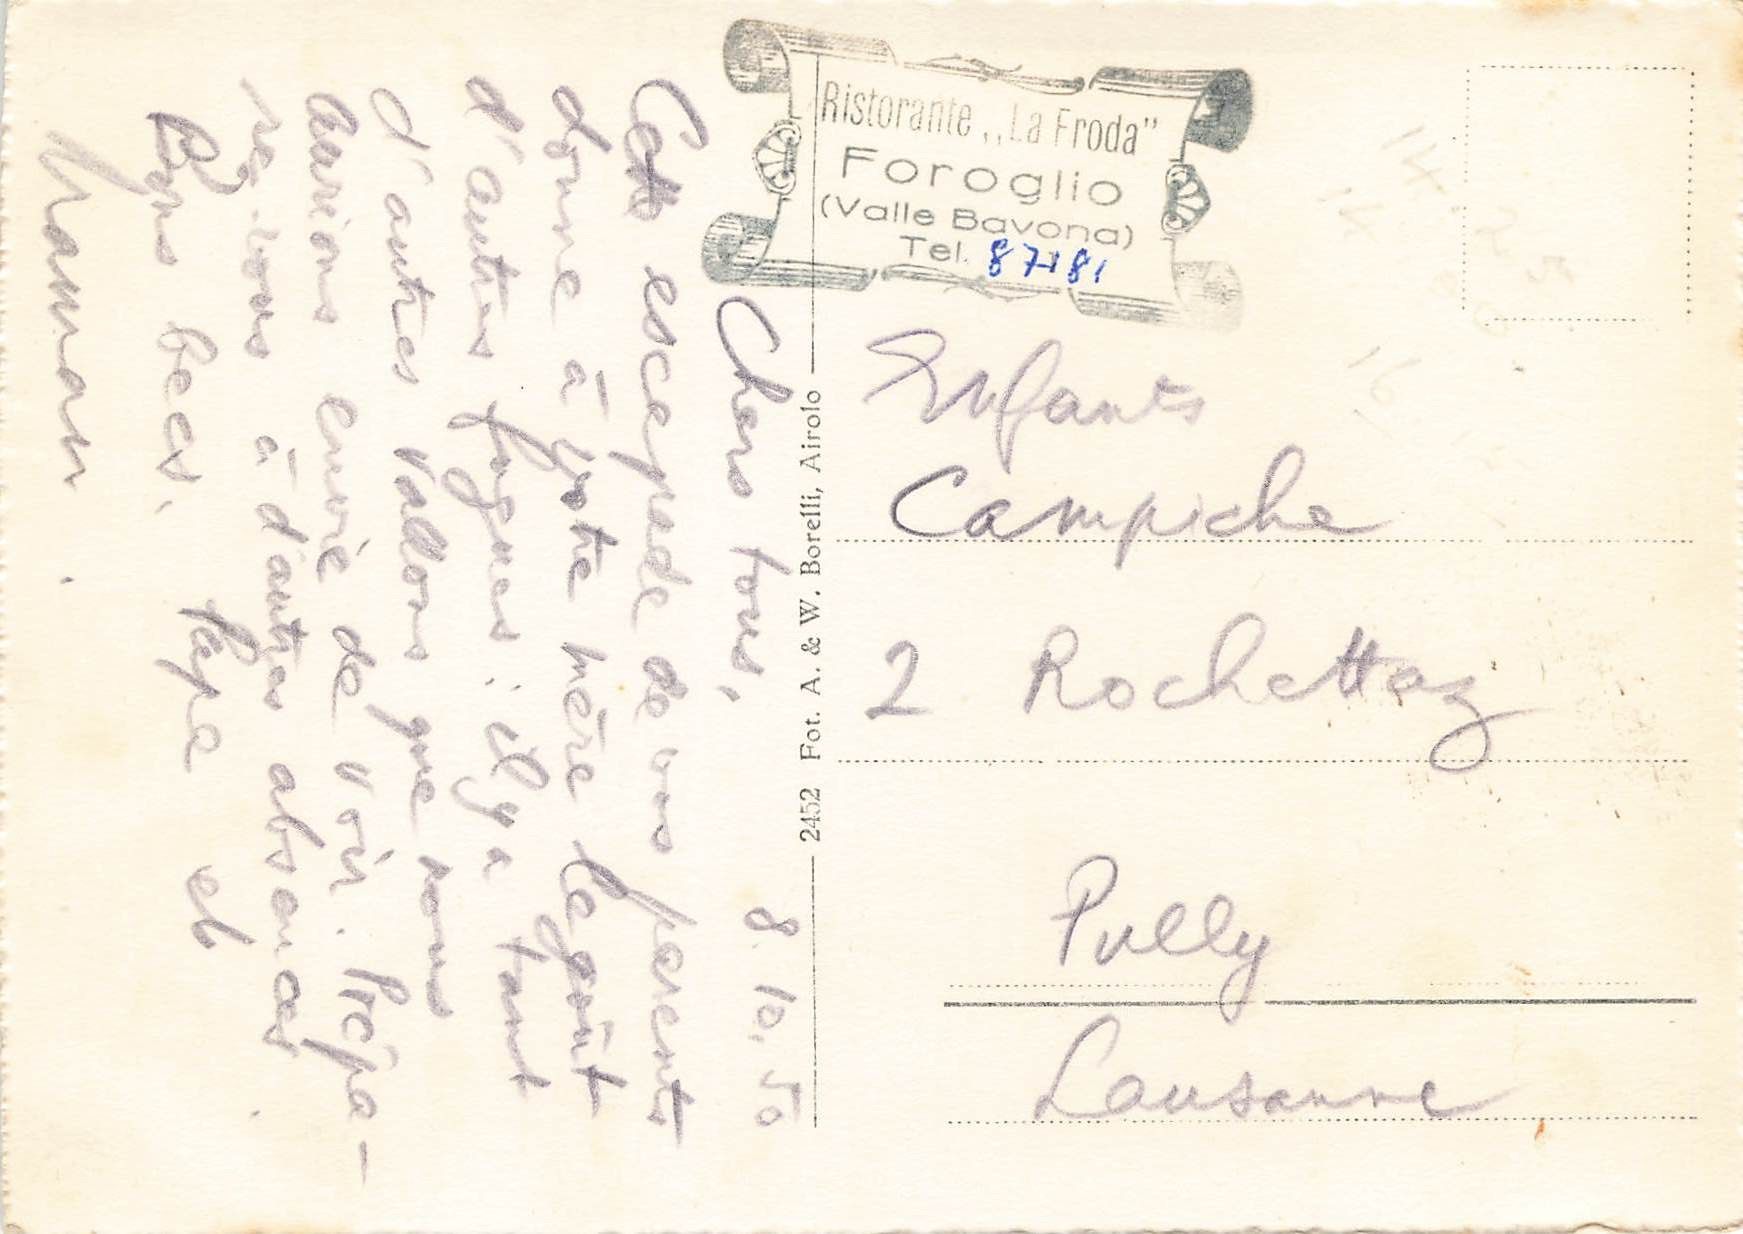 Ristorante „La Froda"
Foroglio
(Valle Bavona)
Tel. 87181
8.10.50
Chers tous,
Cette escapade de vos parents
donne à votre mère le goût
d'autres fugues : il y a tant
d'autres vallons que nous
aurions envie de voir. Prépa-
rez-vous à d'autres absences.
Bons becs. Papa et
Maman.
2452 Fot. A. & W. Borelli, Airolo
Enfants
Campiche
2 Rochettaz
Pully
Lausanne